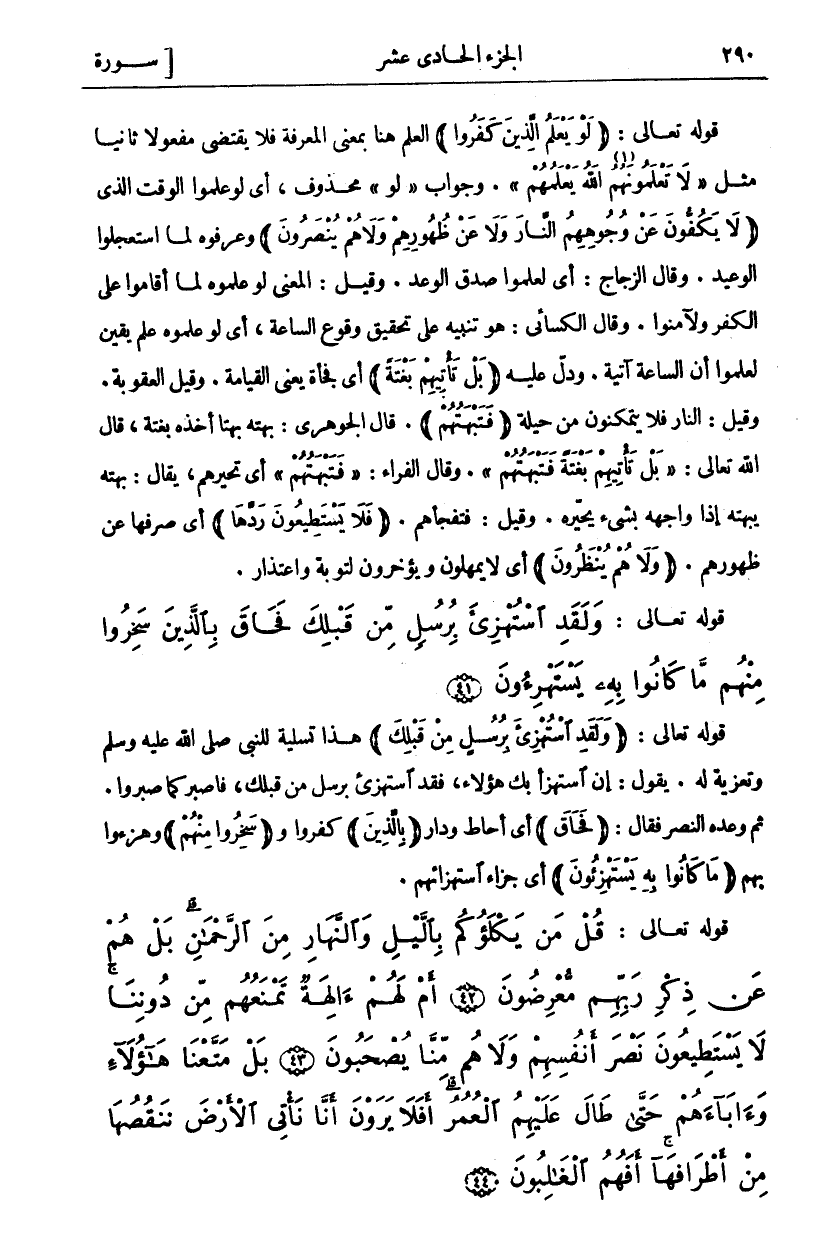 ٢٩٠ الجزء الحادى عشر [ ســورة
قوله تعـالى : ﴿ لَوْ يَعْلَمُ الَّذِينَ كَفَرُوا ﴾ العلم هنا بمعنى المعرفة فلا يقتضى مفعولا ثانيـا
مثـل « لَا تَعْلَمُونَهُمُ اللهُ يَعْلَمُهُمْ » (١) . وجواب « لو » محـذوف ، أى لو علموا الوقت الذى
﴿ لَا يَكُفُّونَ عَنْ وُجُوهِهِمُ النَّـارَ وَلَا عَنْ ظُهُورِهِمْ وَلَاهُمْ يُنْصَرُونَ ﴾ وعرفوه لمـا استعجلوا
الوعيد . وقال الزجاج : أى لعلموا صدق الوعد . وقيـل : المعنى لو علموه لمـا أقاموا على
الكفر ولآمنوا . وقال الكسائى : هو تنبيه على تحقيق وقوع الساعة ، أى لو علموه علم يقين
لعلموا أن الساعة آتية . ودلّ عليـه ﴿ بَلْ تَأْتِيهِمْ بَغْتَةً ﴾ أى فجأة يعنى القيامة . وقيل العقوبة .
وقيل : النار فلا يتمكنون من حيلة ﴿ فَتَبْهَتُهُمْ ﴾ . قال الجوهرى : بهته بهتا أخذه بغتة ، قال
الله تعالى : « بَلْ تَأْتِيهِمْ بَغْتَةً فَتَبْهَتُهُمْ » . وقال الفراء : « فَتَبْهَتُهُمْ » أى تحيرهم ، يقال : بهته
يبهته إذا واجهه بشىء يحيّره . وقيل : فتفجأهم . ﴿ فَلَا يَسْتَطِيعُونَ رَدَّهَا ﴾ أى صرفها عن
ظهورهم . ﴿ وَلَا هُمْ يُنْظَرُونَ ﴾ أى لا يمهلون ويؤخرون لتوبة واعتذار .
قوله تعـالى : وَلَقَدِ ٱسْتُهْزِئَ بِرُسُلٍ مِّن قَبْلِكَ فَحَـاقَ بِٱلَّذِينَ سَخِرُوا
مِنْهُم مَّا كَانُوا بِهِۦ يَسْتَهْزِءُونَ ﴿٤١﴾
قوله تعالى : ﴿ وَلَقَدِ ٱسْتُهْزِئَ بِرُسُـلٍ مِنْ قَبْلِكَ ﴾ هـذا تسلية للنبى صلى الله عليه وسلم
وتعزية له . يقول : إن ٱستهزأ بك هؤلاء، فقد ٱستهزئ برسل من قبلك، فاصبر كما صبروا .
ثم وعده النصر فقال : ﴿ فَحَاقَ ﴾ أى أحاط ودار ﴿ بِالَّذِينَ ﴾ كفروا و ﴿ سَخِرُوا مِنْهُمْ ﴾ وهزءوا
بهم ﴿ مَا كَانُوا بِهِ يَسْتَهْزِئُونَ ﴾ أى جزاء ٱستهزائهم .
قوله تعـالى : قُلْ مَن يَكْلَؤُكُم بِٱلَّيْـلِ وَٱلنَّهَارِ مِنَ ٱلرَّحْمَـٰنِ ۗ بَلْ هُمْ
عَن ذِكْرِ رَبِّهِـم مُّعْرِضُونَ ﴿٤٢﴾ أَمْ لَهُـمْ ءَالِهَـةٌ تَمْنَعُهُم مِّن دُونِنَـا ۚ
لَا يَسْتَطِيعُونَ نَصْرَ أَنفُسِهِمْ وَلَا هُم مِّنَّا يُصْحَبُونَ ﴿٤٣﴾ بَلْ مَتَّعْنَا هَـٰٓؤُلَآءِ
وَءَابَآءَهُمْ حَتَّىٰ طَالَ عَلَيْهِمُ ٱلْعُمُرُ ۗ أَفَلَا يَرَوْنَ أَنَّا نَأْتِى ٱلْأَرْضَ نَنقُصُهَا
مِنْ أَطْرَافِهَآ ۚ أَفَهُمُ ٱلْغَـٰلِبُونَ ﴿٤٤﴾